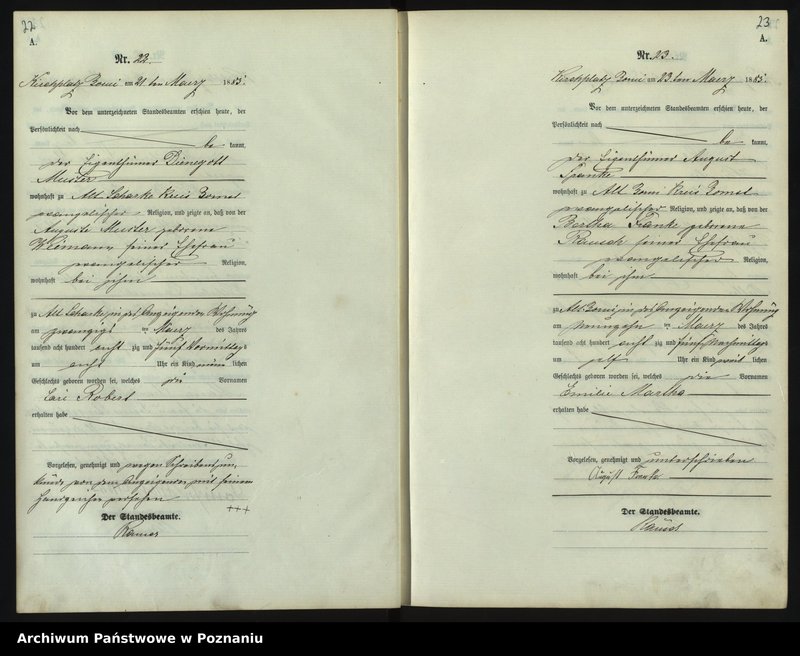 22
A.
Nr. 22.
Kirchplatz Borui am 21. ten Maerz 1885.
Vor dem unterzeichneten Standesbeamten erschien heute, der
Persönlichkeit nach
be kannt,
der Eigenthümer Dienegott
Muster
wohnhaft zu Alt Scharke Kreis Bomst
evangelischer Religion, und zeigte an, daß von der
Auguste Muster geborene
seiner Ehefrau
evangelischer Religion,
wohnhaft bei ihm
zu Alt Scharke, in des Anzeigenden Wohnung
am zwanzigs ten Maerz des Jahres
tausend acht hundert acht zig und fünf Vormittags
um acht Uhr ein Kind männ lichen
Geschlechts geboren worden sei, welches die Vornamen
Carl Robert
erhalten habe
Vorgelesen, genehmigt und wegen Schreibensun,
kunde von dem Anzeigenden mit seinem
Handzeichen versehen
+++
Der Standesbeamte.
23
A.
Nr. 23.
Kirchplatz Borui am 23. ten Maerz 1885.
Vor dem unterzeichneten Standesbeamten erschien heute, der
Persönlichkeit nach
be kannt,
der Eigenthümer August
Franke
wohnhaft zu Alt Borui Kreis Bomst
evangelischer Religion, und zeigte an, daß von der
Bertha Franke geborene
Rausch seiner Ehefrau
evangelischer Religion,
wohnhaft bei ihm
zu Alt Borui, in des Anzeigenden Wohnung
am neunzehn ten Maerz des Jahres
tausend acht hundert acht zig und fünf Nachmittags
um elf Uhr ein Kind weib lichen
Geschlechts geboren worden sei, welches die Vornamen
Emilie Martha
erhalten habe
Vorgelesen, genehmigt und unterschrieben
August Franke
Der Standesbeamte.
Archiwum Państwowe w Poznaniu